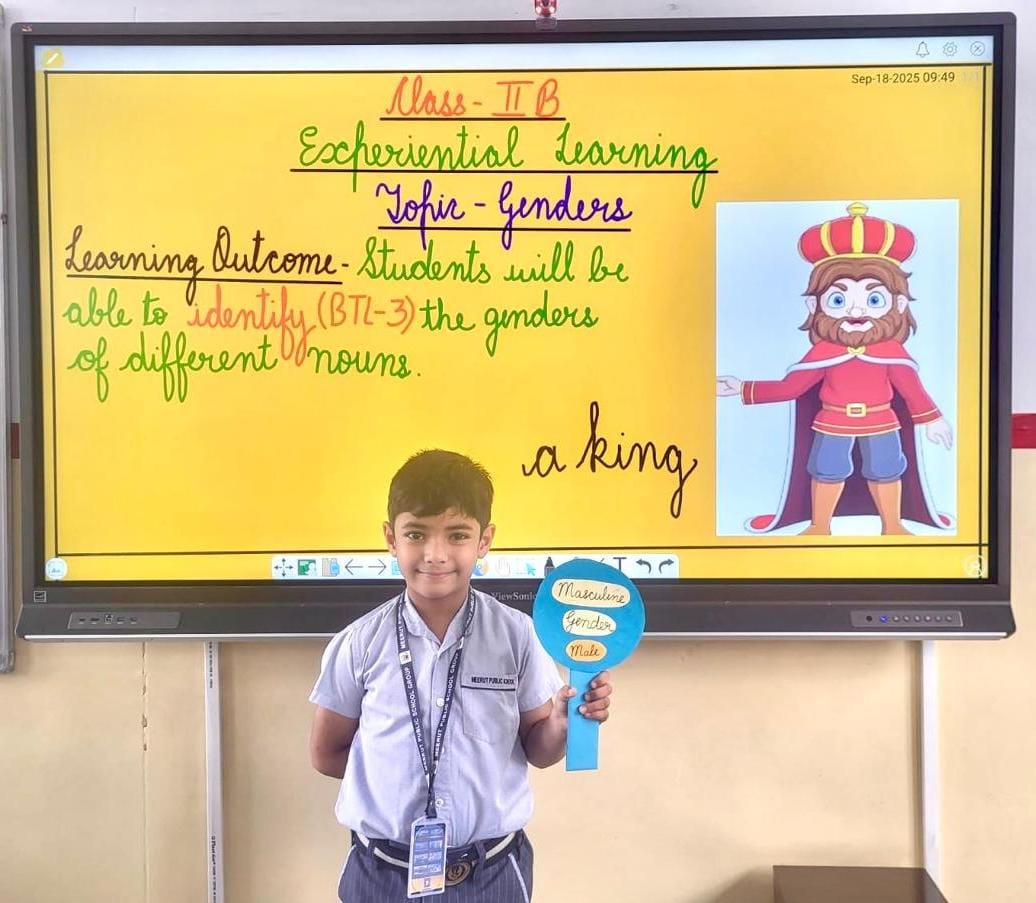 Sep-18-2025 09:49
Class - II B
Experiential Learning
Topic - Genders
Learning Outcome - Students will be
able to identify (BTL-3) the genders
of different nouns.
a king
ViewSonic
Masculine
Gender
Male
MEERUT PUBLIC SCHOOL
MEERUT PUBLIC SCHOOL GROUP
MEERUT PUBLIC SCHOOL GROUP